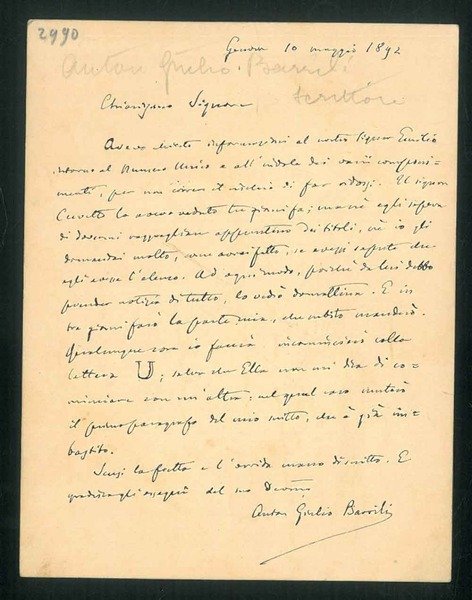 2990
Genova 10 maggio 1892
Anton Giulio Barrili
scrittore
Chiarissimo Signore,
Avevo chiesto informazioni al nostro Signor Emilio
intorno al Numero Unico e all'indole dei varii componi-
menti, per non correre il rischio di far ridossi. Il signor
la avevo veduto tre giorni fa; ma nè egli sapeva
di potermi ragguagliare appuntino dei titoli, nè io gli
domandai molto, come avrei fatto, se avessi saputo che
egli avesse l'elenco. Ad ogni modo, poichè da lui debbo
prender notizia di tutto, lo vedrò domattina. E in
tre giorni farò la parte mia, che subito manderò.
Qualunque cosa io faccia incomincierà colla
lettera U; salvo che Ella non mi dica di co-
minciare con un'altra: nel qual caso muterò
il primo paragrafo del mio scritto, che è già im-
bastito.
Scusi la fretta e l'orrida mano di scritto. E
gradisca gli ossequii del suo Devmo
Anton Giulio Barrili